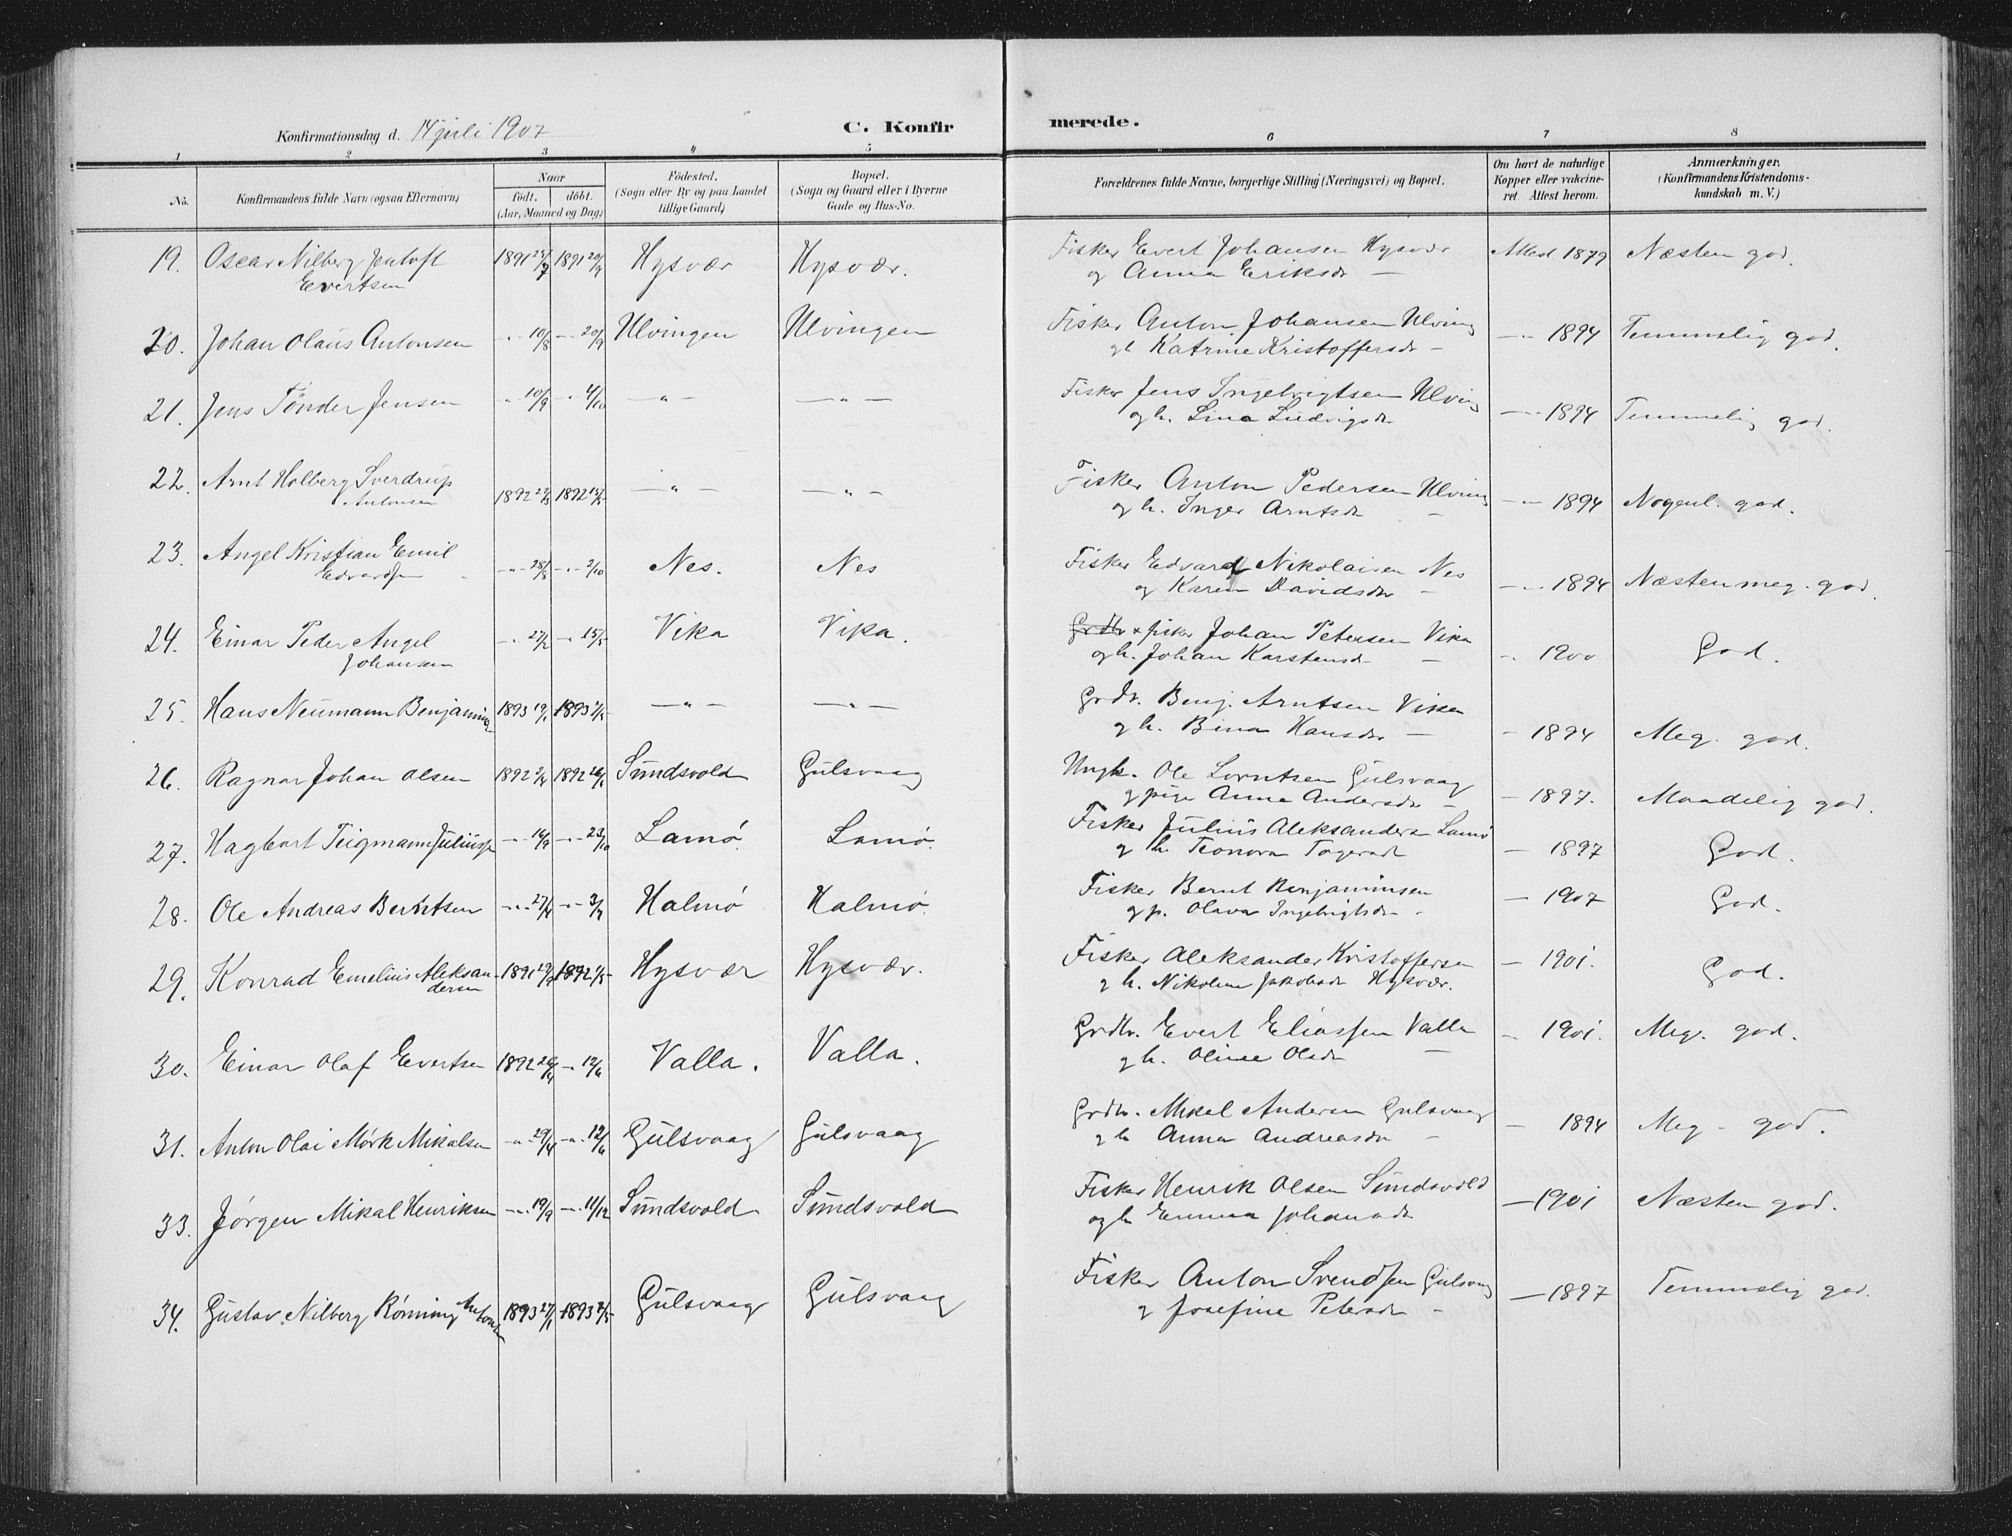 Konfirmationsdag d. 14 juli 1907 C. Konfir merede.
1 2 3 4 5 6 7 8
No. Konfirmandens fulde Navn (ogsaa Efternavn) Naar født. døbt. (Aar, Maaned og Dag) Fødested. (Sogn eller By og paa Landet tillige Gaard) Bopæl. (Sogn og Gaard eller i Byerne Gade og Hus-No. Forældrenes fulde Navne, borgerlige Stilling (Næringsvei) og Bopæl. Om havt de naturlige Kopper eller vakcineret Attest herom. Anmærkninger. (Konfirmandens Kristendomskundskab m. V.)
19. Oscar Nilberg Jentoft Evertsen 1891 1891 20/9 Hysvær Hysvær. Fisker Evert Johansen Hysvær Attest 1879 Næsten god.
og Anna Eriksdr —
20. Johan Olaus Antonsen -"- 10/8 -"- 20/9 Ulvingen Ulvingen Fisker Anton Johansen Ulving —"— 1894 Temmelig god.
Katrine Kristoffersdr —
21. Jens Tönder Jensen " 10/9 -"- 4/10 —"— —"— Fisker Jens Ingebrigtsen Ulving —"— 1894 Temmelig god.
og h. Lina Ludvigsdr
22. Arnt Holberg Sverdrup Antonsen 1892 1892 —"— —"— Fisker Anton Pedersen Ulving —"— 1894 Nogenl. god.
og h. Inger Arntsdr —
23. Angel Kristian Emil Edvardsen -"- 28/8 -"- 2/10 Nes. Nes Fisker Edvard Nikolaisen Nes —"— 1894 Næsten meg. god.
og Karen Davidsdr —
24. Einar Peder Angel Johansen -"- 27/2 -"- 15/5 Vika Vika. Grdbr & fisker Johan Petersen Vika -"- 1900 God.
og h. Johan Karstensdr —
25. Hans Neumann Benjaminsen 1893 19/1 1893 —"— —"— Grdbr. Benj. Arntsen Vika — 1894 Meg. god.
og h. Bina Hansdr —
26. Ragnar Johan Olsen 1892 1892 Sundsvold Gulsvaag Ungk. Ole Lorntsen Gulsvaag — 1897. Maadelig god.
og pige Anna Andersdr —
27. Hagbart Teigmann Juliussen -"- 14/9 -"- 23/10 Lamø Lamø. Fisker Julius Aleksandersen Lamø — 1897 God.
28. Ole Andreas Berntsen -"- 27/4 -"- 3/7 Halmø Halmø. Fisker Bernt Benjaminsen — 1907 God.
og p. Olava Ingebrigtsdr —
29. Konrad Emelius Aleksandersen 1891 1892 Hysvær Hysvær. Fisker Aleksander Kristoffersen — 1901. God.
og h. Nikoline Jakobsdr Hysvær.
30. Einar Olaf Evertsen 1892 26/4 -"- 12/6 Valla. Valla. Grdbr. Evert Eliassen Valla — 1901. Meg. god.
og h. Oline Olsdr —
31. Anton Olai Mørk Mikalsen -"- 29/4 -"- 12/6 Gulsvaag Gulsvaag Grdbr. Mikal Andersen Gulsvaag — 1894 Meg. god.
og h Anna Andreasdr —
33. Jørgen Mikal Henriksen -"- 19/9 -"- 11/12 Sundsvold Sundsvold Fisker Henrik Olsen Sundsvold — 1901 Næsten god.
og h Emma Johansdr
34. Gustav Nilberg Rönning Antonsen 1893 27/1 1893 Gulsvaag Gulsvaag Fisker Anton Svendsen Gulsvaag — 1897 Temmelig god.
og Josefine Petersdr —